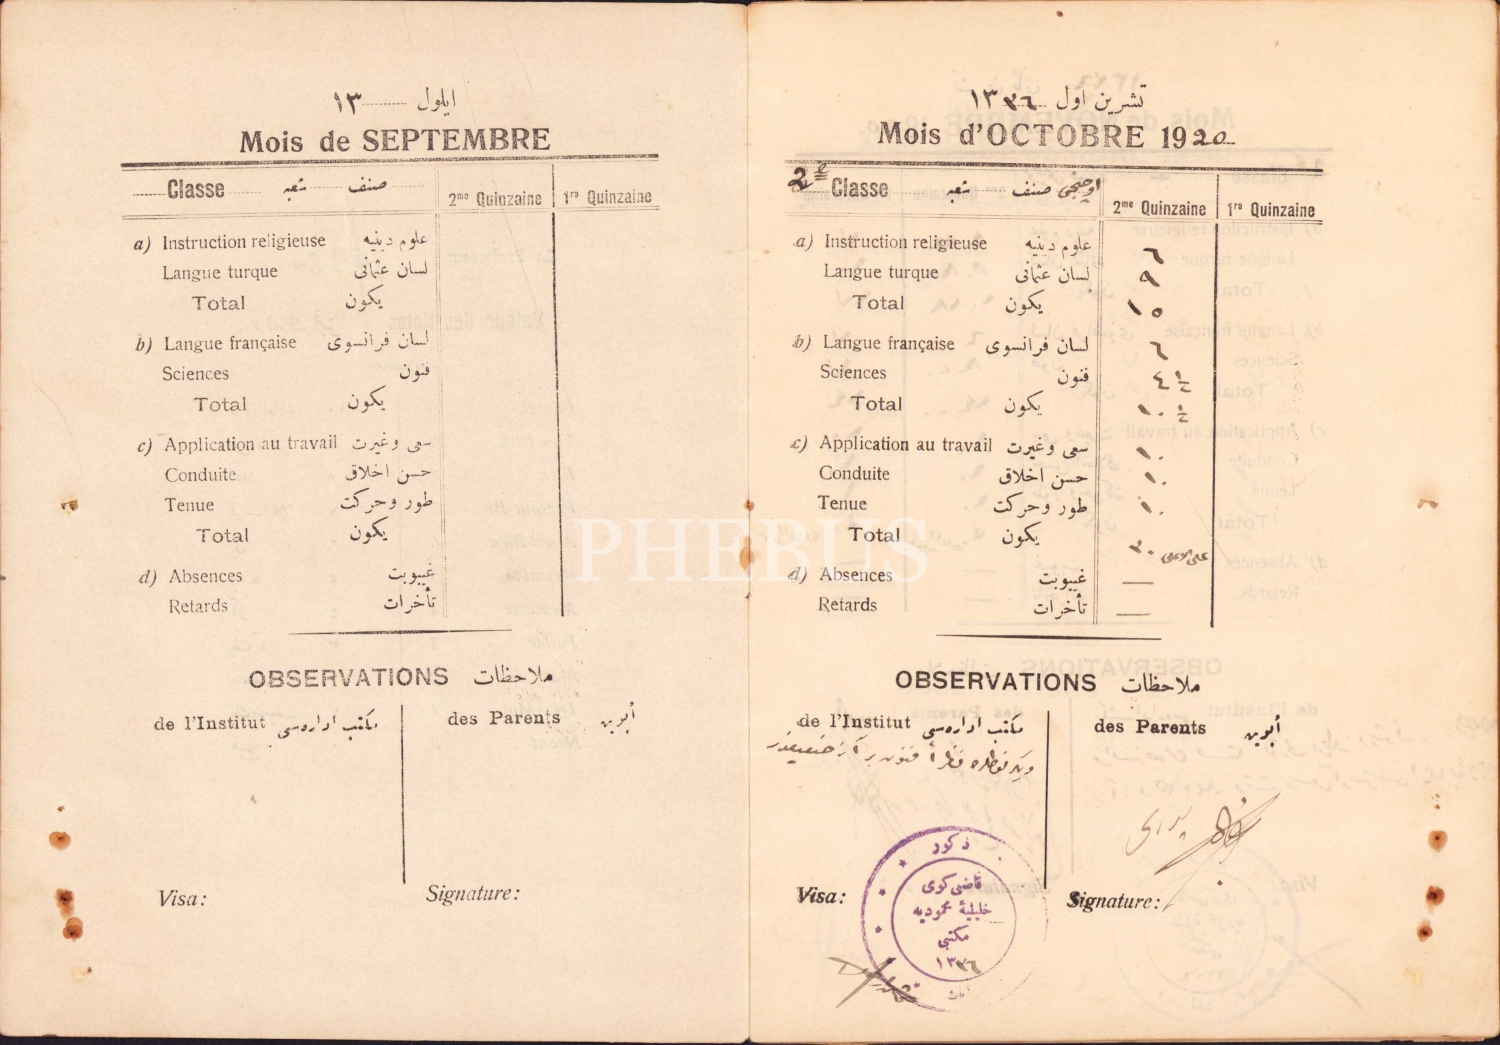 ايلول ١٣
Mois de SEPTEMBRE
Classe شعبه صنف
2me Quinzaine 1re Quinzaine
a) Instruction religieuse علوم دينيه
Langue turque لسان عثمانى
Total يكون
b) Langue française لسان فرانسوى
Sciences فنون
Total يكون
c) Application au travail سعى وغيرت
Conduite حسن اخلاق
Tenue طور وحركت
Total يكون
d) Absences غيبوبت
Retards تأخرات
OBSERVATIONS ملاحظات
de l'Institut مكتب اداره سى
des Parents أبوين
Visa:
Signature:
تشرين اول ١٣٣٦
Mois d'OCTOBRE 1920
2e Classe شعبه صنف
2me Quinzaine 1re Quinzaine
a) Instruction religieuse علوم دينيه ٦
Langue turque لسان عثمانى ٩
Total يكون ١٥
b) Langue française لسان فرانسوى ٦
Sciences فنون ٤ ½
Total يكون ١٠ ½
c) Application au travail سعى وغيرت ١٠
Conduite حسن اخلاق ١٠
Tenue طور وحركت ١٠
Total يكون ٣٠ على الاعلى
d) Absences غيبوبت —
Retards تأخرات —
OBSERVATIONS ملاحظات
de l'Institut مكتب اداره سى
des Parents أبوين
Visa:
Signature:
ذكور
قاضى كوى
خليليۀ محموديه
مكتبى
١٣٣٦
اناث
PHEBUS